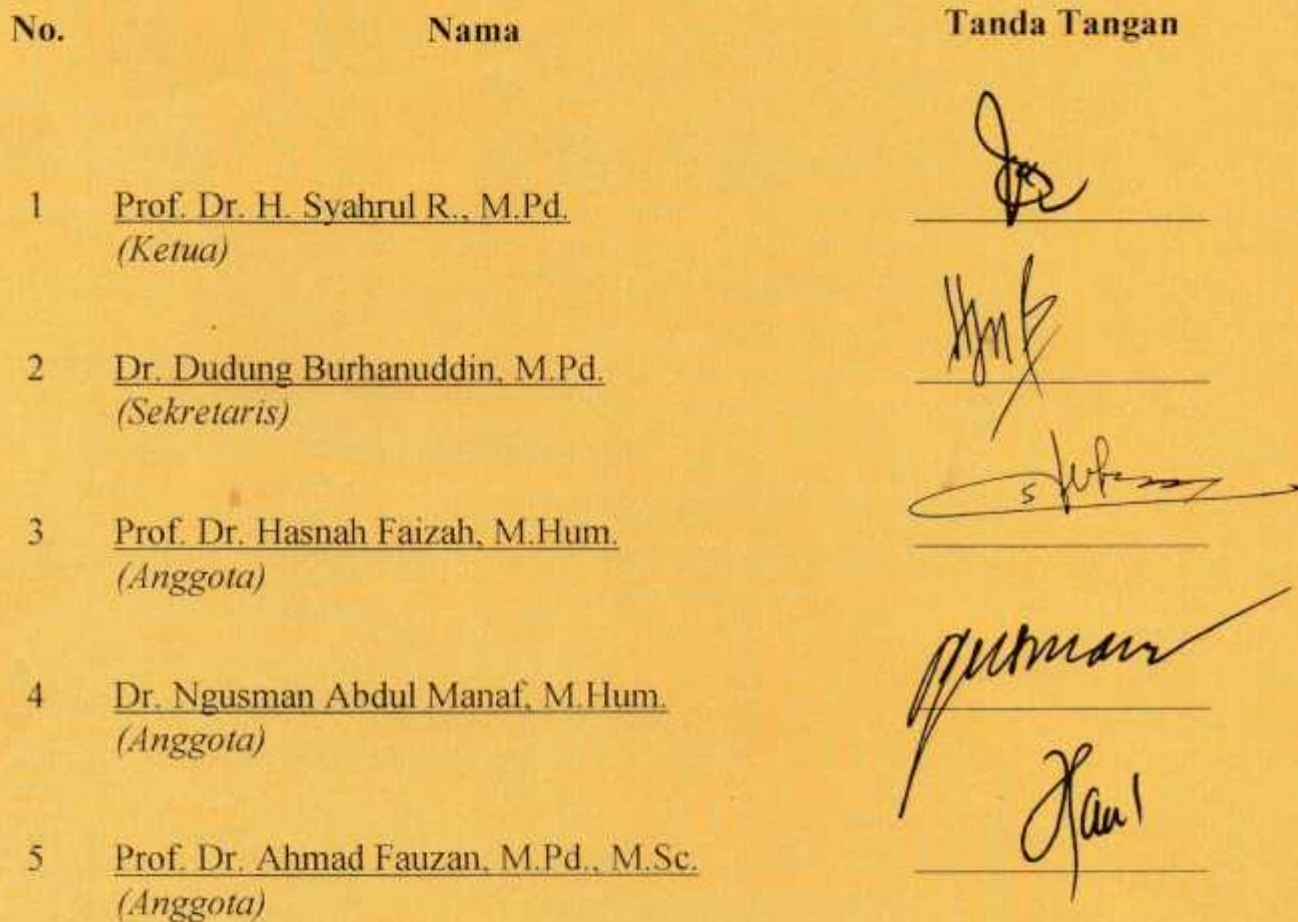 No. Nama Tanda Tangan
1 Prof. Dr. H. Syahrul R., M.Pd.
(Ketua)
2 Dr. Dudung Burhanuddin, M.Pd.
(Sekretaris)
3 Prof. Dr. Hasnah Faizah, M.Hum.
(Anggota)
4 Dr. Ngusman Abdul Manaf, M.Hum.
(Anggota)
5 Prof. Dr. Ahmad Fauzan, M.Pd., M.Sc.
(Anggota)